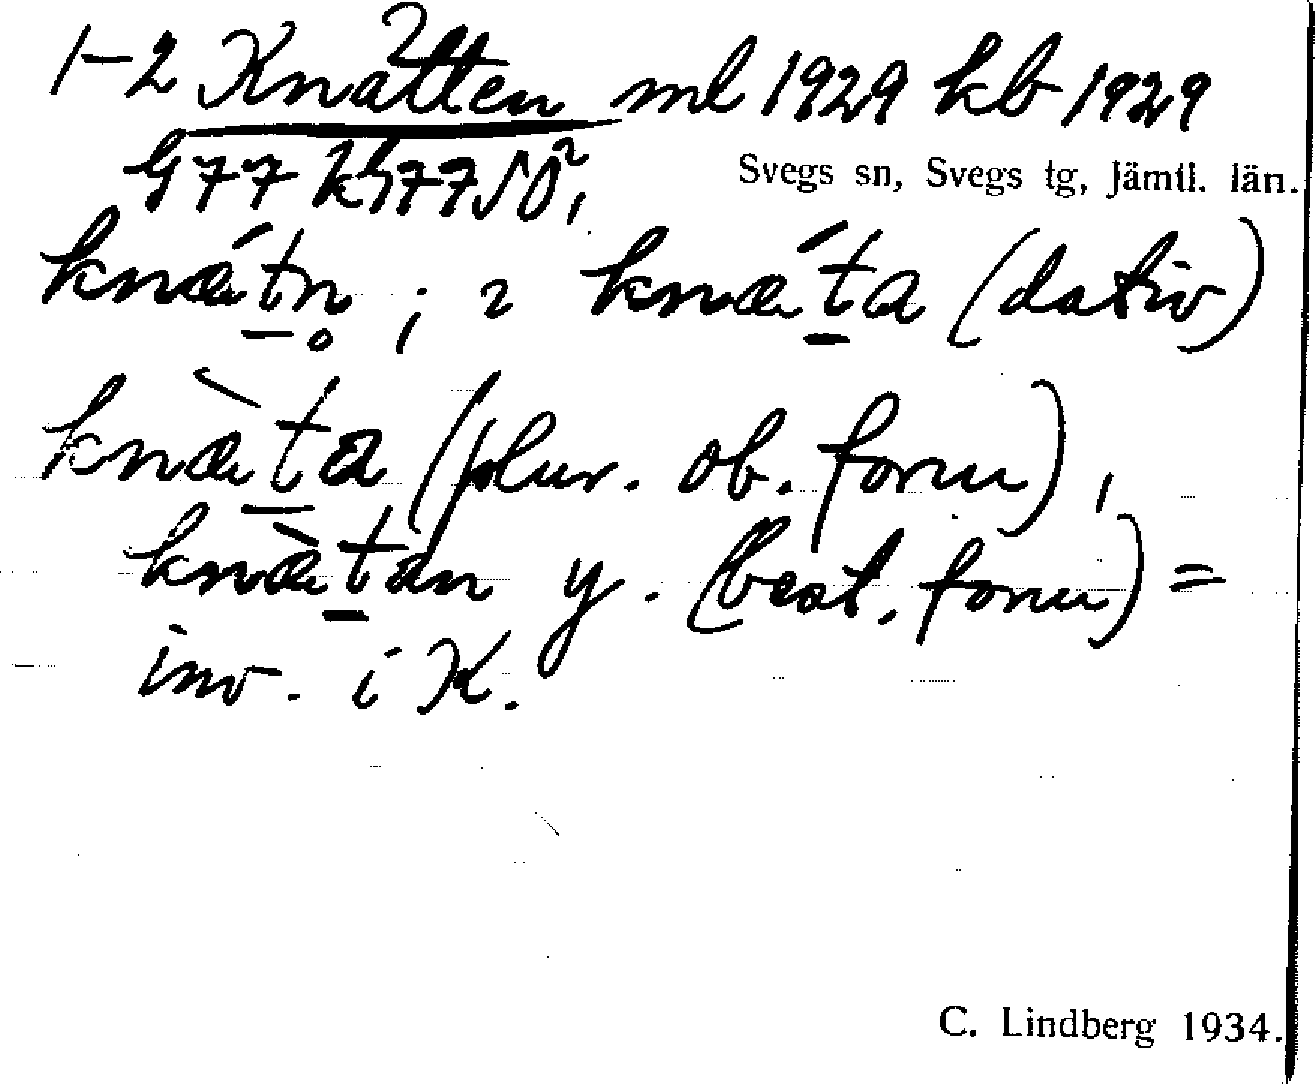 1-2 Knätten ml 1929 kb 1929
G77 kG77 SV²,
Svegs sn, Svegs tg, Jämtl. län.
knǽt̲n̥ ; 2 knǽt̲a (dativ)
knæ̀t̲a (plur. ob. form),
knæ̀t̲an y. (best. form) =
inv. i K.
C. Lindberg 1934.